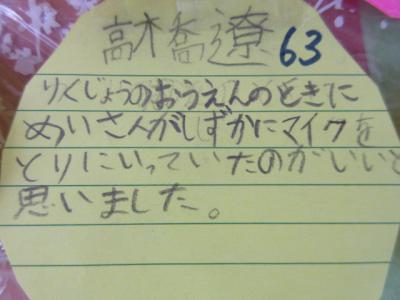 高橋遼 63
りくじょうのおうえんのときに
めいさんがしずかにマイクを
とりにいっていたのがいいと
思いました。